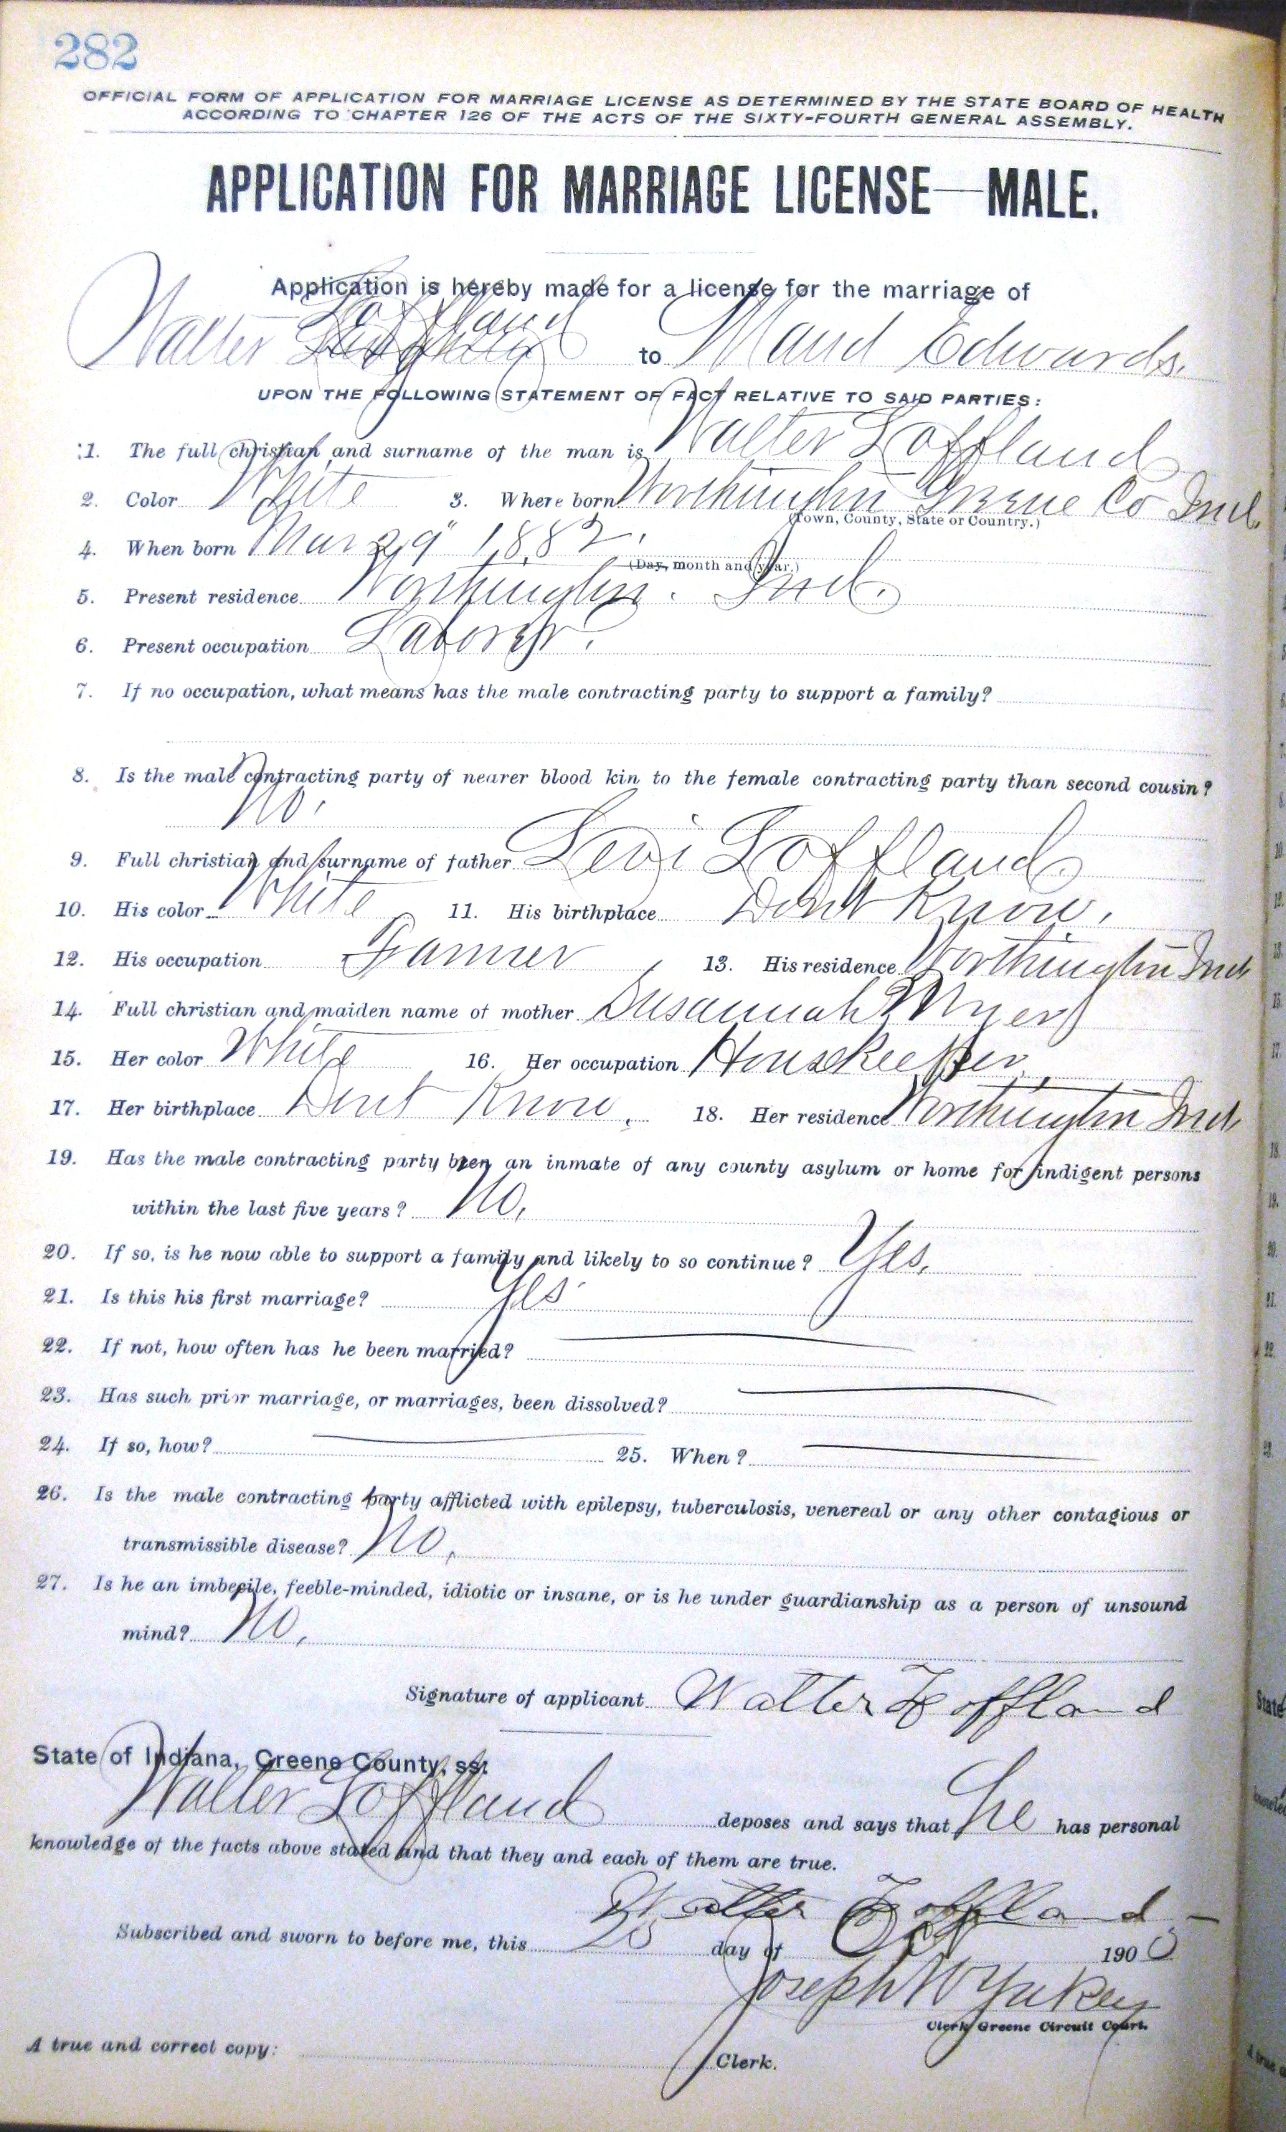 282
OFFICIAL FORM OF APPLICATION FOR MARRIAGE LICENSE AS DETERMINED BY THE STATE BOARD OF HEALTH
ACCORDING TO CHAPTER 126 OF THE ACTS OF THE SIXTY-FOURTH GENERAL ASSEMBLY.
APPLICATION FOR MARRIAGE LICENSE—MALE.
Application is hereby made for a license for the marriage of
Loffland
Walter to Maud Edwards.
UPON THE FOLLOWING STATEMENT OF FACT RELATIVE TO SAID PARTIES:
1. The full christian and surname of the man is Walter Loffland
2. Color White 3. Where born Worthington Greene Co Ind.
(Town, County, State or Country.)
4. When born Mar 29" 1882.
(Day, month and year.)
5. Present residence Worthington. Ind.
6. Present occupation Laborer.
7. If no occupation, what means has the male contracting party to support a family?
8. Is the male contracting party of nearer blood kin to the female contracting party than second cousin?
No.
9. Full christian and surname of father Levi Loffland
10. His color White 11. His birthplace Dont Know.
12. His occupation Farmer 13. His residence Worthington Ind
14. Full christian and maiden name of mother Susannah Myers
15. Her color White 16. Her occupation Housekeeper,
17. Her birthplace Dont Know, 18. Her residence Worthington Ind,
19. Has the male contracting party been an inmate of any county asylum or home for indigent persons
within the last five years? No,
20. If so, is he now able to support a family and likely to so continue? Yes,
21. Is this his first marriage? Yes
22. If not, how often has he been married?
23. Has such prior marriage, or marriages, been dissolved?
24. If so, how? 25. When?
26. Is the male contracting party afflicted with epilepsy, tuberculosis, venereal or any other contagious or
transmissible disease? No,
27. Is he an imbecile, feeble-minded, idiotic or insane, or is he under guardianship as a person of unsound
mind? No,
Signature of applicant Walter Loffland
State of Indiana, Greene County, ss:
Walter Loffland deposes and says that he has personal
knowledge of the facts above stated and that they and each of them are true.
Walter Loffland
Subscribed and sworn to before me, this 25 day of Oct 1905
Joseph W Yakey
Clerk Greene Circuit Court.
A true and correct copy: Clerk.